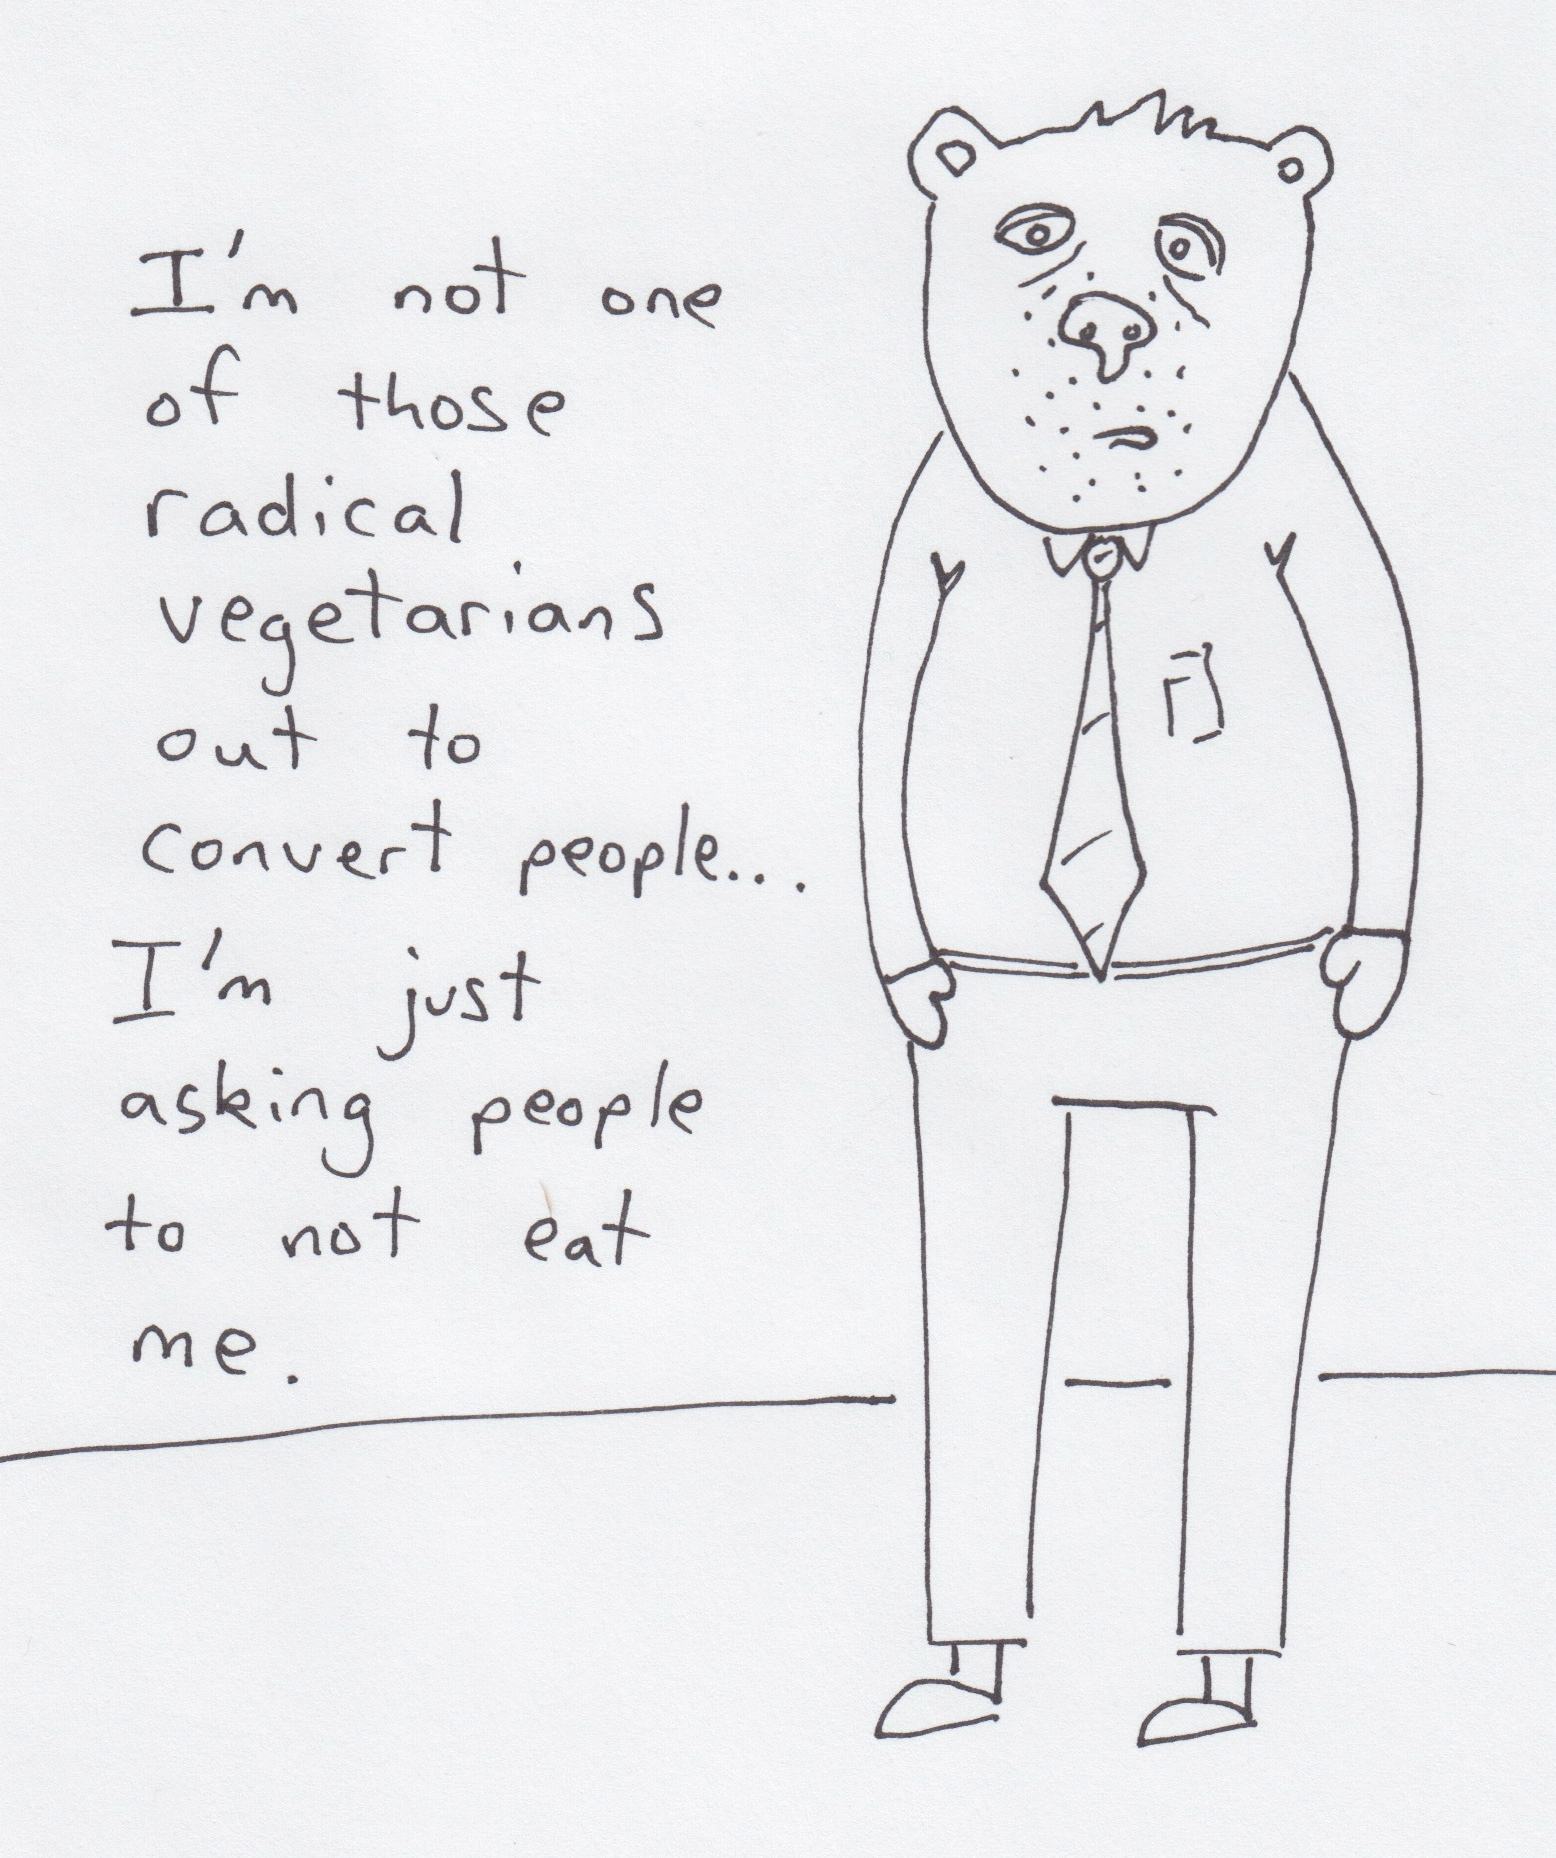 I'm not one
of those
radical
vegetarians
out to
convert people...
I'm just
asking people
to not eat
me.